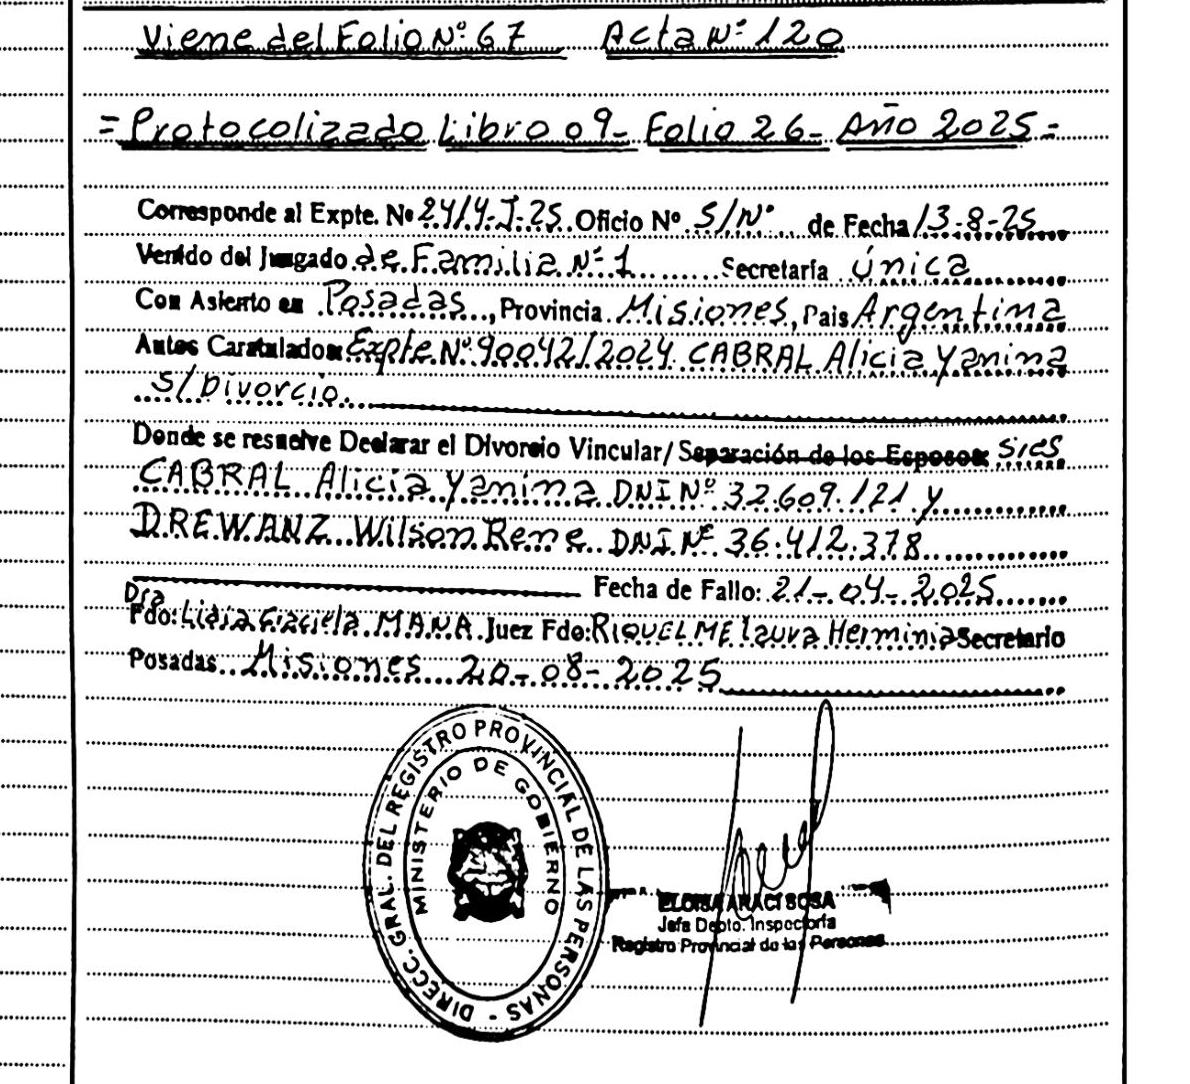 Viene del Folio Nº 67 Acta Nº 120
= Protocolizado Libro 09- Folio 26- Año 2025 =
Corresponde al Expte. Nº 2414-J-25 Oficio Nº S/Nº de Fecha 13-8-25
Venido del Juzgado de Familia Nº 1 Secretaría única
Con Asiento en Posadas, Provincia Misiones, País Argentina
Autos Caratulados Expte. Nº 90042/2024 CABRAL Alicia Yanina
S/Divorcio.
Donde se resuelve Declarar el Divorcio Vincular/ Separación de los Esposos: S/es
CABRAL Alicia Yanina DNI Nº 32.609.121 y
DREWANZ Wilson Rene DNI Nº 36.412.378
Fecha de Fallo: 21-04-2025
Dra
Fdo: Lidia Graciela MANA Juez Fdo: RIQUELME Laura Herminia Secretario
Posadas Misiones 20-08-2025
DIRECC. GRAL. DEL REGISTRO PROVINCIAL DE LAS PERSONAS -
MINISTERIO DE GOBIERNO
ELOISA ARACI SOSA
Jefa Depto. Inspectoría
Registro Provincial de las Personas